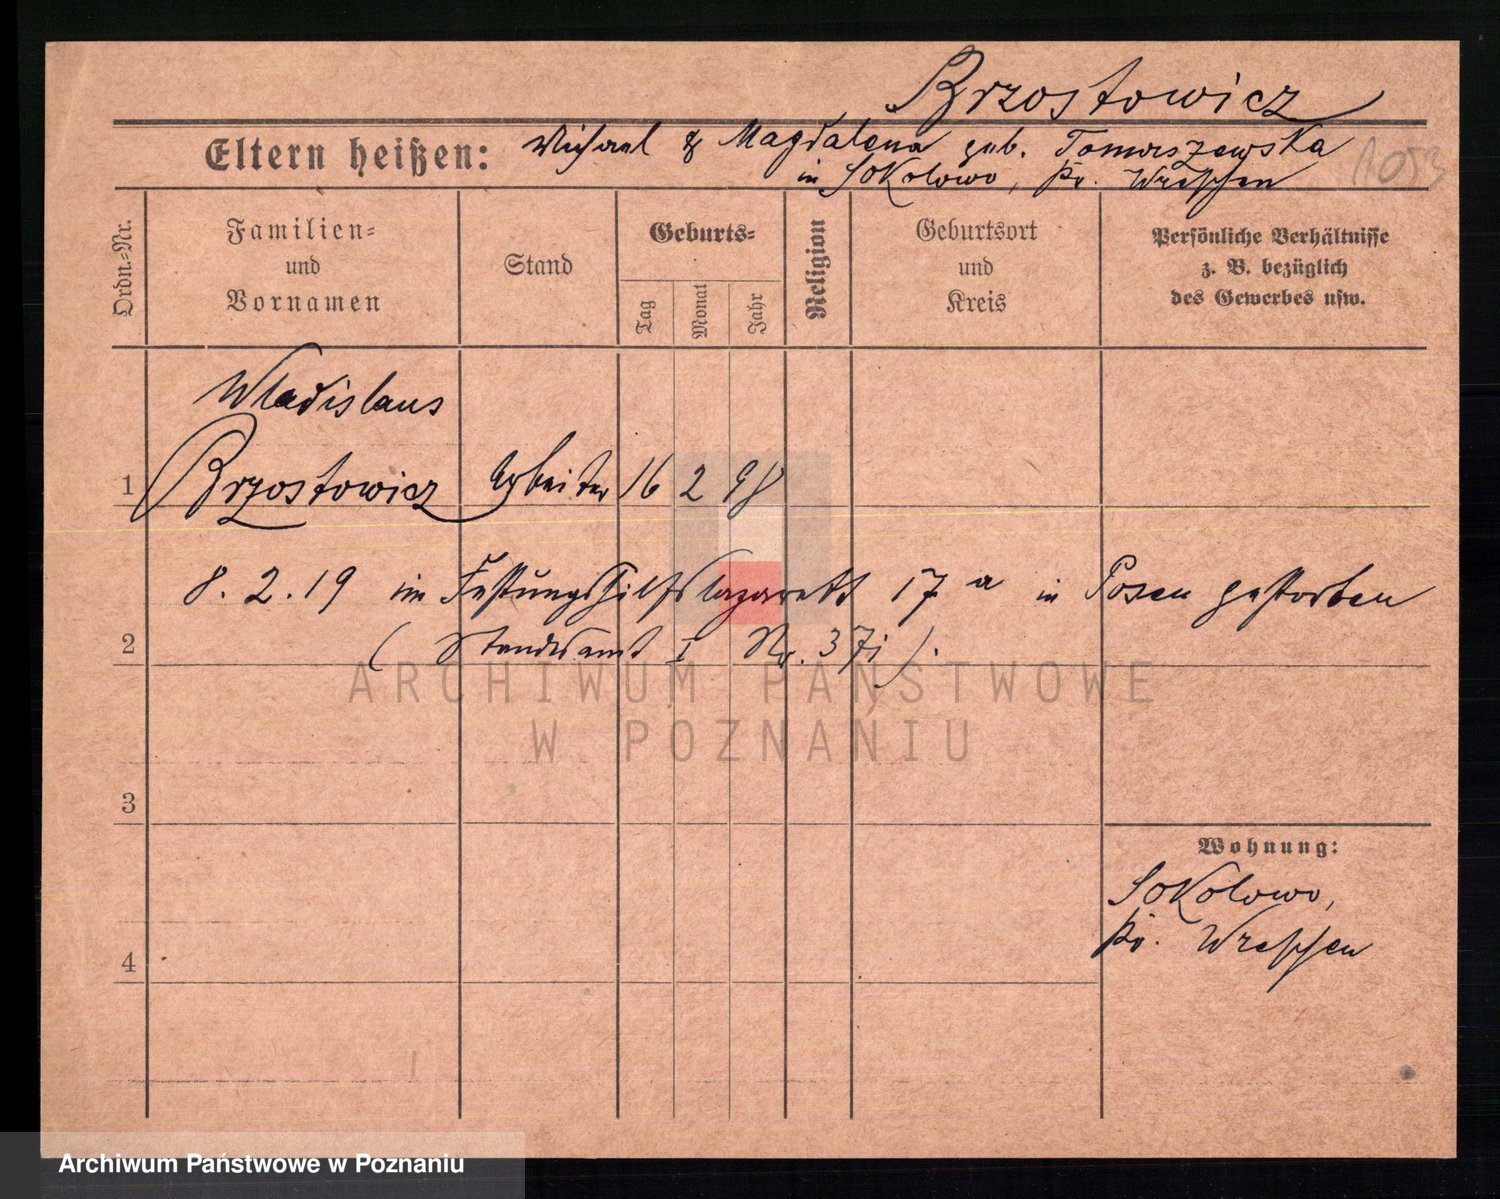 Brzostowicz
Eltern heißen: Michael & Magdalena geb. Tomaszewska
in Sokolowo, Kr. Wreschen
1053
Ordn.-Nr.
Familien-
und
Vornamen
Stand
Geburts-
Tag
Monat
Jahr
Religion
Geburtsort
und
Kreis
Persönliche Verhältnisse
z. B. bezüglich
des Gewerbes usw.
Wladislaus
1 Brzostowicz Arbeiter 16 2 98
8. 2. 19 im Festungshilfslazarett 17 a in Posen gestorben
2 (Standesamt I Nr. 37i).
ARCHIWUM PAŃSTWOWE
W POZNANIU
3
Wohnung:
Sokolowo,
Kr. Wreschen
4
Archiwum Państwowe w Poznaniu